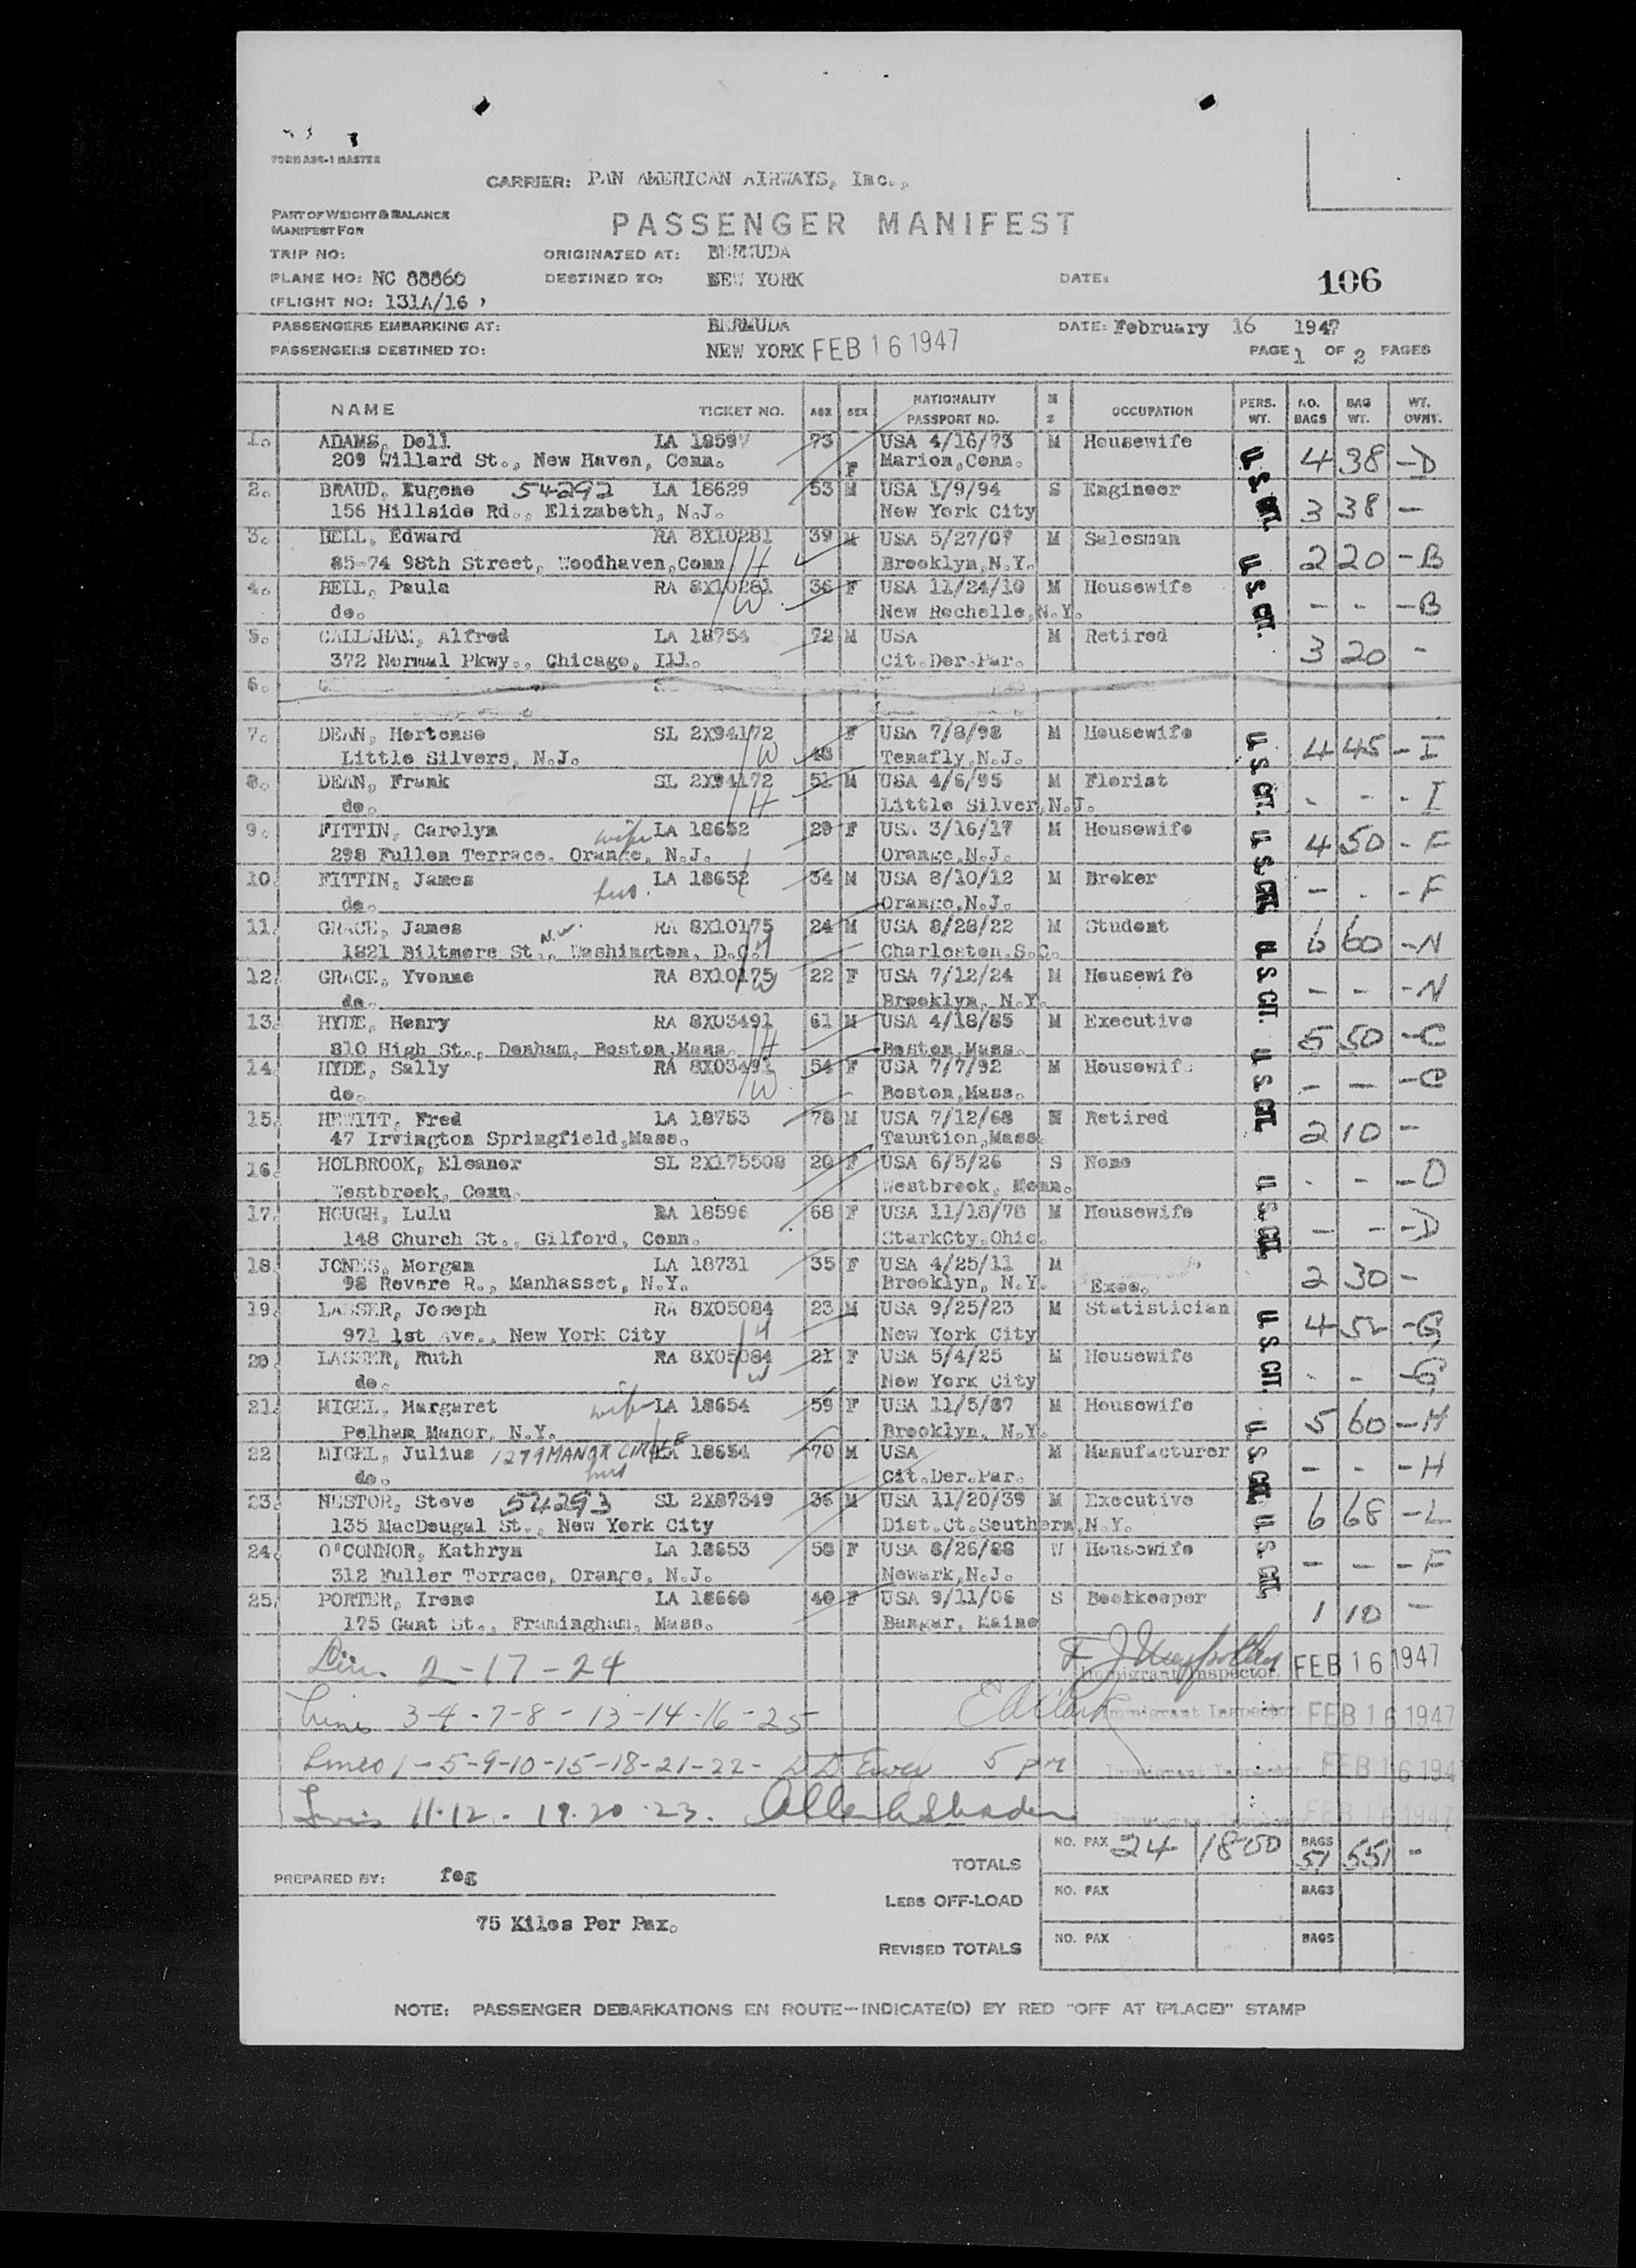 FORM ABC-1 MASTER
CARRIER: PAN AMERICAN AIRWAYS, Inc.,
PART OF WEIGHT & BALANCE
MANIFEST FOR
PASSENGER MANIFEST
TRIP NO: ORIGINATED AT: BERMUDA
PLANE NO: NC 88860 DESTINED TO: NEW YORK DATE: 106
(FLIGHT NO: 131A/16 )
PASSENGERS EMBARKING AT: BERMUDA DATE: February 16 1947
PASSENGERS DESTINED TO: NEW YORK FEB 16 1947 PAGE 1 OF 2 PAGES
NAME TICKET NO. AGE SEX NATIONALITY PASSPORT NO. M S OCCUPATION PERS. WT. NO. BAGS BAG WT. WT. OVNT.
1. ADAMS, Dell LA 18597 73 F USA 4/16/73 M Housewife U.S. CIT. 4 38 - D
209 Willard St., New Haven, Conn. Marion,Conn.
2. BRAUD, Eugene 54292 LA 18629 53 M USA 1/9/94 S Engineer 3 38 -
156 Hillside Rd., Elizabeth, N.J. New York City
3. BELL, Edward RA 8X10281 39 M USA 5/27/07 M Salesman U.S. CIT. 2 20 - B
85-74 98th Street, Woodhaven,Conn H Brooklyn,N.Y.
4. BELL, Paula RA 8X10281 36 F USA 11/24/10 M Housewife - - - B
do. W New Rochelle,N.Y.
5. CALLAHAM, Alfred LA 18754 72 M USA M Retired 3 20 -
372 Normal Pkwy., Chicago, Ill. Cit.Der.Par.
6.
7. DEAN, Hortense SL 2X94172 48 F USA 7/8/98 M Housewife U.S. CIT. 4 45 - I
Little Silvers, N.J. W Tenafly,N.J.
8. DEAN, Frank SL 2X94172 51 M USA 4/6/95 M Florist - - - I
do. H Little Silver,N.J.
9. FITTIN, Carolyn wife LA 18652 29 F USA 3/16/17 M Housewife U.S. CIT. 4 50 - F
298 Fullen Terrace. Orange, N.J. Orange,N.J.
10. FITTIN, James hus. LA 18652 34 M USA 8/10/12 M Broker - - - F
do. Orange,N.J.
11. GRACE, James RA 8X10175 24 M USA 8/28/22 M Student U.S. CIT. 6 60 - N
1821 Biltmore St., N.W. Washington, D.C. H Charleston,S.C.
12. GRACE, Yvonne RA 8X10175 22 F USA 7/12/24 M Housewife - - - N
do. W Brooklyn, N.Y.
13. HYDE, Henry RA 8X03491 61 M USA 4/18/85 M Executive U.S. CIT. 5 50 - C
810 High St., Denham, Boston,Mass. H Boston,Mass.
14. HYDE, Sally RA 8X03491 54 F USA 7/7/92 M Housewife - - - C
do. W Boston,Mass.
15. HEWITT, Fred LA 18753 78 M USA 7/12/68 Retired 2 10 -
47 Irvington Springfield,Mass. Tauntion,Mass.
16. HOLBROOK, Eleanor SL 2X175508 20 F USA 6/5/26 S None - - - D
Westbrook, Conn. Westbrook,
17. HOUGH, Lulu RA 18596 68 F USA 11/18/78 M Housewife U.S. CIT. - - - D
148 Church St., Gilford, Conn. StarkCty.Ohio.
18. JONES, Morgan LA 18731 35 F USA 4/25/11 M Exec. 2 30 -
98 Revere R., Manhasset, N.Y. Brooklyn, N.Y.
19. LASSER, Joseph RA 8X05084 23 M USA 9/25/23 M Statistician U.S. CIT. 4 52 - G
971 1st Ave., New York City H New York City
20. LASSER, Ruth RA 8X05084 21 F USA 5/4/25 M Housewife - - - G
do. W New York City
21. MIGEL, Margaret wife LA 18654 59 F USA 11/5/87 M Housewife 5 60 - H
Pelham Manor, N.Y. Brooklyn, N.Y.
22 MIGEL, Julius 1279 MANOR CIRCLE LA 18654 70 M USA M Manufacturer U.S. CIT. - - - H
do. hus Cit.Der.Par.
23. NESTOR, Steve 54293 SL 2X87349 36 M USA 11/20/39 M Executive 6 68 - L
135 MacDougal St., New York City Dist.Ct.Southern,N.Y.
24. O'CONNOR, Kathryn LA 18653 58 F USA 8/26/88 W Housewife U.S. CIT. - - - F
312 Fuller Terrace, Orange, N.J. Newark,N.J.
25. PORTER, Irene LA 18660 40 F USA 9/11/06 S Bookkeeper 1 10 -
175 Gant St., Framingham, Mass. Bangar, Maine
2-17-24 Immigrant Inspector. FEB 16 1947
Lines 3-4-7-8-13-14-16-25 Immigrant Inspector FEB 16 1947
Lines 1-5-9-10-15-18-21-22- 5 pm Immigrant Inspector FEB 16 194
11-12-19-20-23. FEB 16 1947
TOTALS NO. PAX 24 1800 BAGS 51 551 -
PREPARED BY: feg
LESS OFF-LOAD NO. PAX BAGS
75 Kilos Per Pax.
REVISED TOTALS NO. PAX BAGS
NOTE: PASSENGER DEBARKATIONS EN ROUTE—INDICATE(D) BY RED "OFF AT (PLACE)" STAMP